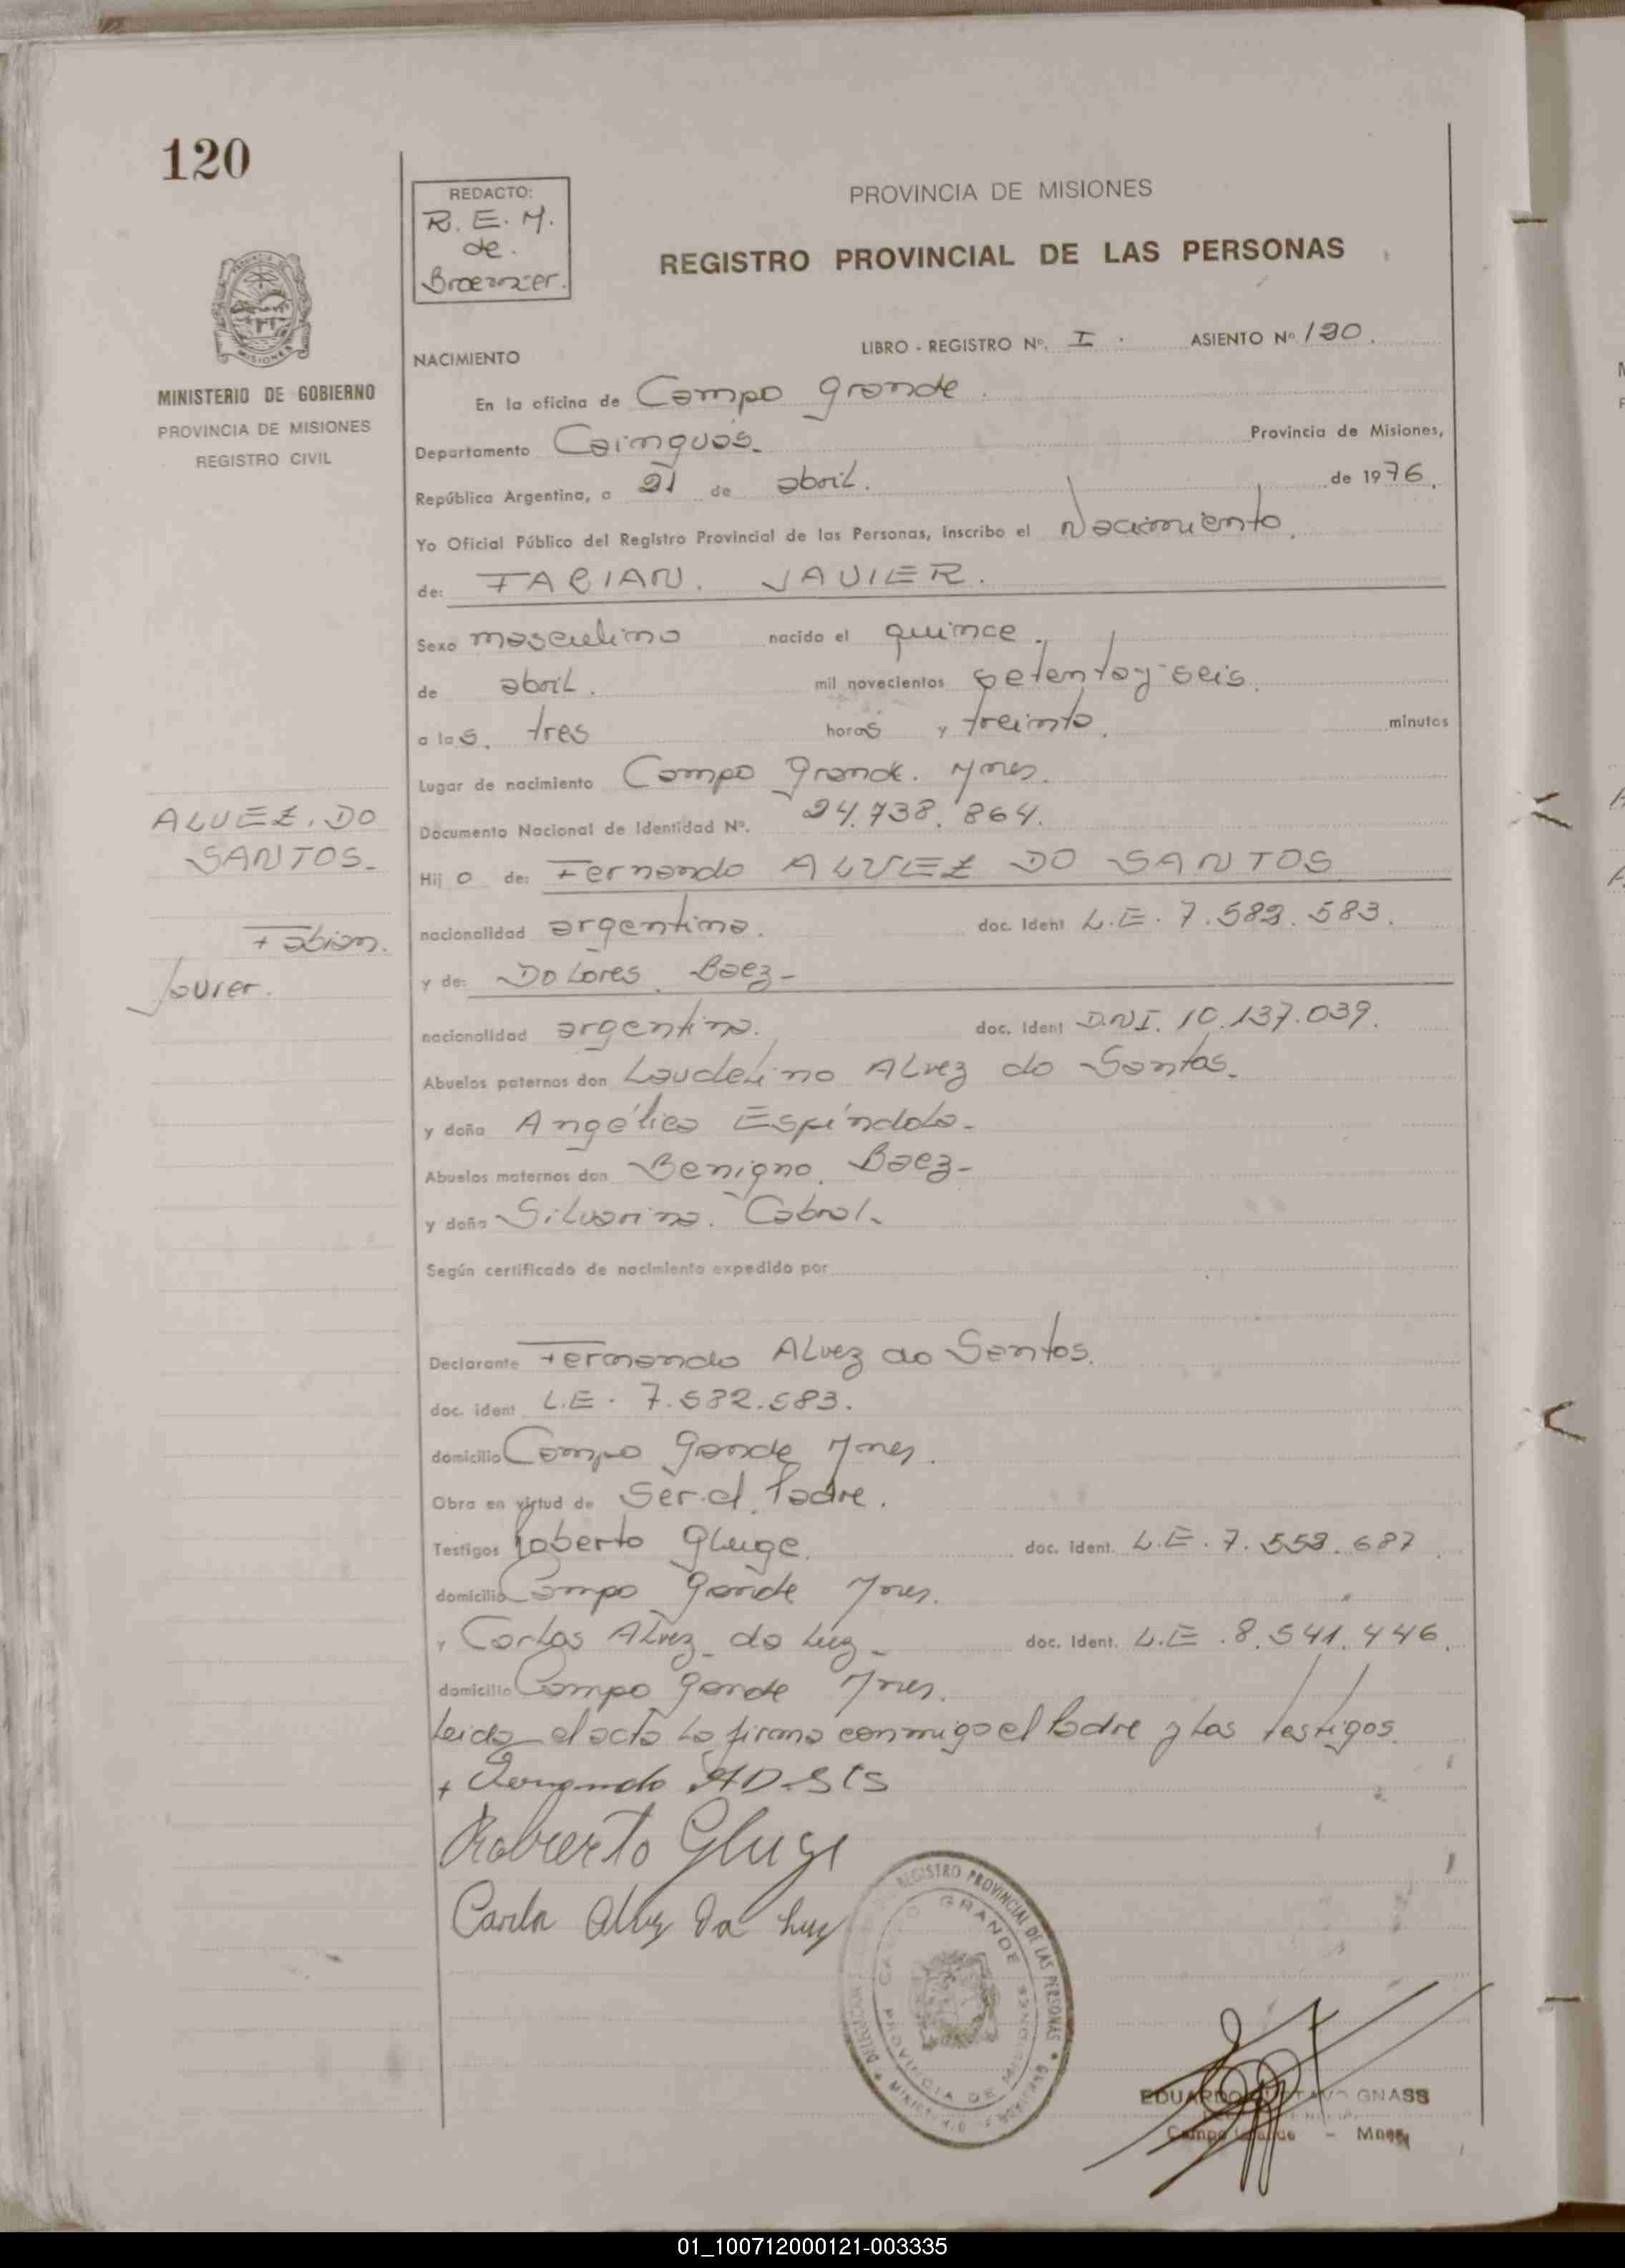 120
REDACTO:
R. E. M.
de.
PROVINCIA DE MISIONES
REGISTRO PROVINCIAL DE LAS PERSONAS
MISIONES
MINISTERIO DE GOBIERNO
PROVINCIA DE MISIONES
REGISTRO CIVIL
NACIMIENTO
LIBRO - REGISTRO Nº. I. ASIENTO Nº 120.
En la oficina de Campo Grande.
Departamento Cainguás. Provincia de Misiones,
República Argentina, a 21 de abril. de 1976.
Yo Oficial Público del Registro Provincial de las Personas, inscribo el Nacimiento.
de: FABIAN. JAVIER.
Sexo masculino nacido el quince.
de abril. mil novecientos setenta y seis.
a las. tres horas y treinta. minutos
Lugar de nacimiento Campo Grande. Mnes.
Documento Nacional de Identidad Nº. 24.738.864.
ALVEZ. DO
SANTOS.
Fabian.
Javier.
Hijo de: Fernando ALVEZ DO SANTOS
nacionalidad argentina. doc. Ident L.E. 7.582.583.
y de: Dolores. Baez-
nacionalidad argentina. doc. Ident D.N.I. 10.137.039.
Abuelos paternos don Laudelino Alvez do Santos.
y doña Angélica Espíndola-
Abuelos maternos don Benigno. Baez-
y doña Silvarina. Cabral.
Según certificado de nacimiento expedido por
Declarante Fernando Alvez do Santos.
doc. ident L.E. 7.582.583.
domicilio Campo Gande Mnes.
Obra en virtud de Ser el Padre.
Testigos Roberto Gluge. doc. Ident. L.E. 7.558.687
domicilio Campo Gande Mnes.
y Carlos Alvez da Luz- doc. Ident. L.E. 8.541.446.
domicilio Campo Gande Mnes.
Leida el acta la firma conmigo el Padre y los testigos.
+ Fernando AD-Sts
Roberto Gluge
Carlos Alvez Da Luz
REGISTRO PROVINCIAL DE LAS PERSONAS
CAMPO GRANDE
PROVINCIA DE MISIONES
EDUARDO GUSTAVO GNASS
Campo Grande - Mnes
01_100712000121-003335